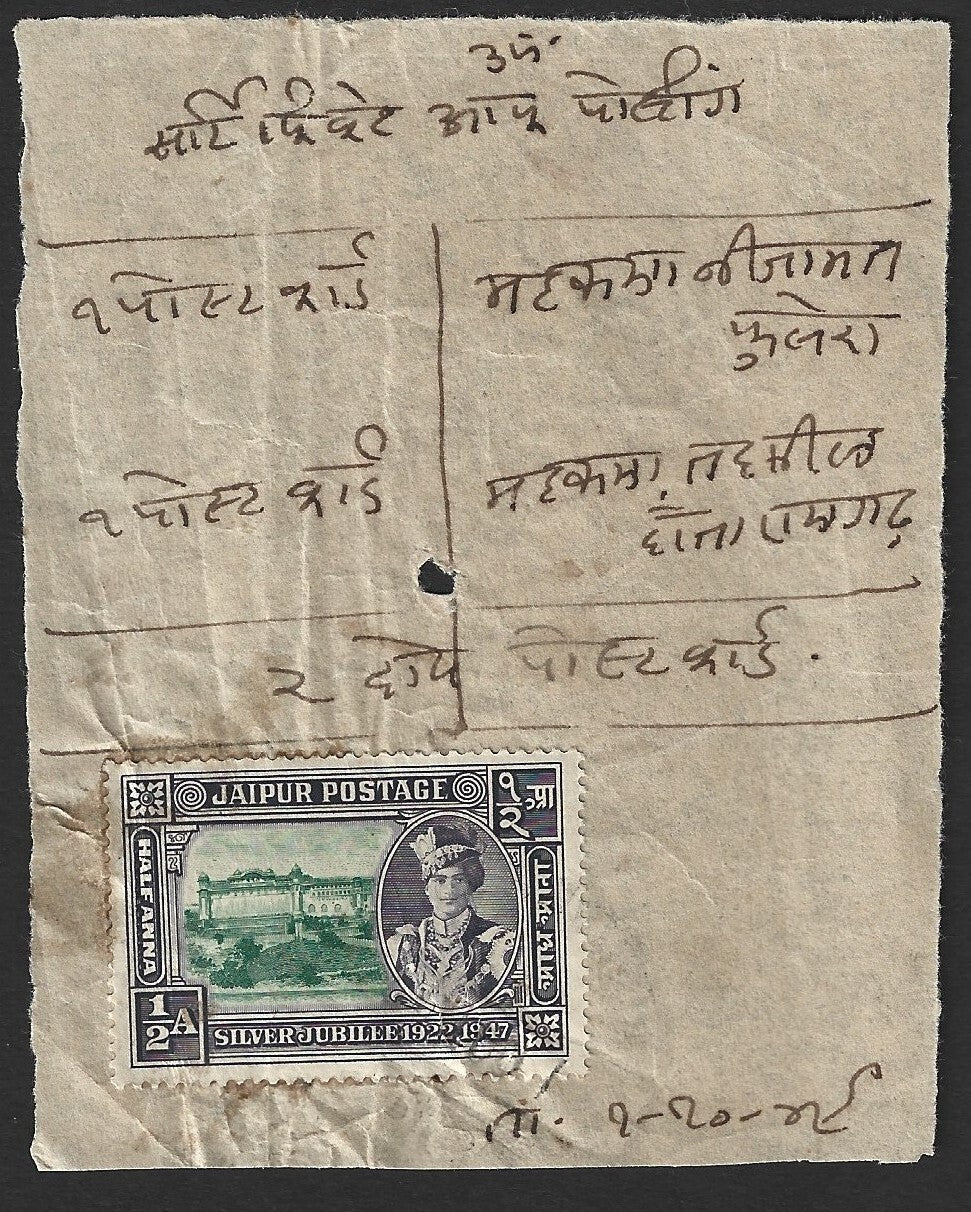 उफ॰
सार्टिफिकेट आफ पोस्टींग
१ पोस्ट कार्ड
महकमा नीजामत
फुलेरा
१ पोस्ट कार्ड
महकमा तहसील
दाँता रामगढ़
२ दोय पोस्ट कार्ड .
JAIPUR POSTAGE
१/२ आ
HALF ANNA
आध आना
1/2 A
SILVER JUBILEE 1922 1947
ता. १-१०-४८